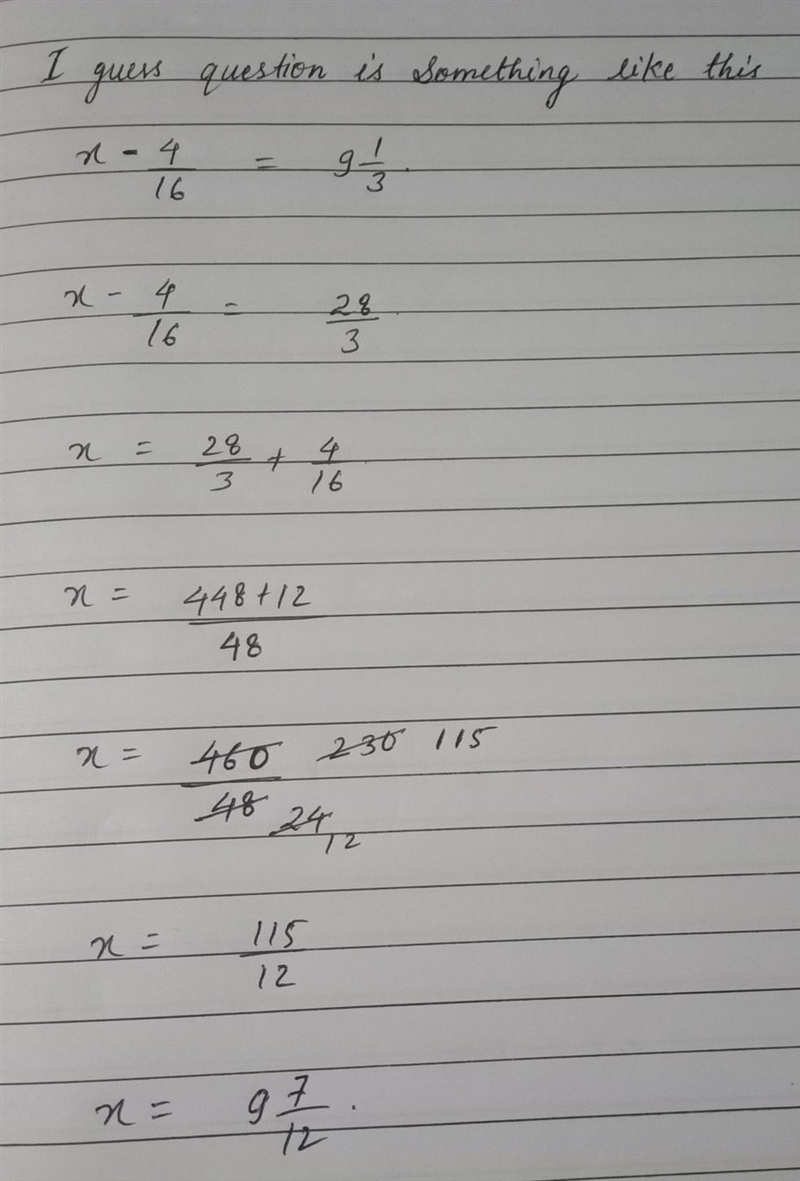 I guess question is something like this
x - 4/16 = 9 1/3.
x - 4/16 = 28/3.
x = 28/3 + 4/16
x = 448+12/48
x = 460/48 230/24 115/12
x = 115/12
x = 9 7/12.